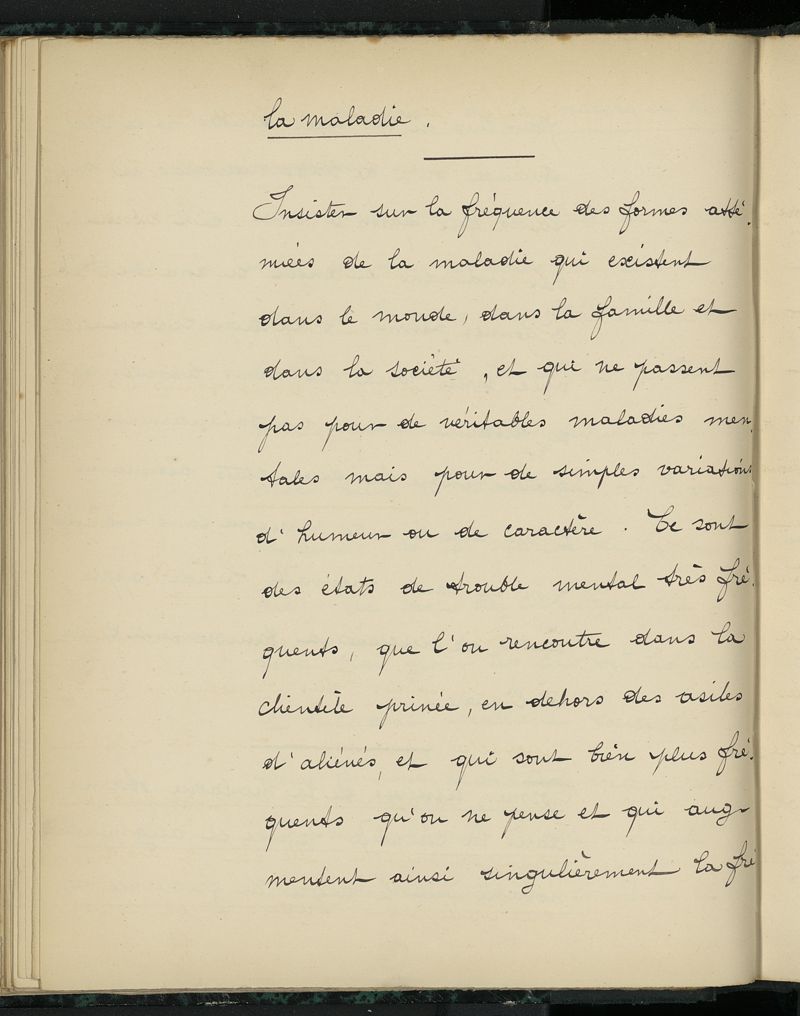 la maladie.
Insister sur la fréquence des formes atté-
nuées de la maladie qui existent
dans le monde, dans la famille et
dans la société, et qui ne passent
pas pour de véritables maladies men-
tales mais pour de simples variations
d'humeur ou de caractère. Ce sont
des états de trouble mental très fré-
quents, que l'on rencontre dans la
clientèle privée, en dehors des asiles
d'aliénés, et qui sont bien plus fré-
quents qu'on ne pense et qui aug-
mentent ainsi singulièrement la fré